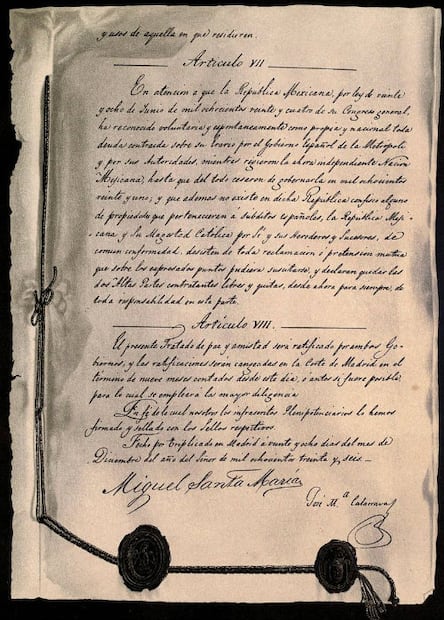 y usos de aquella en que residieren.
Articulo VII
En atencion a que la Republica Mexicana, por ley de veinte
y ocho de Junio de mil ochocientos veinte y cuatro de su Congreso general,
ha reconocido voluntaria y espontaneamente como propia y nacional toda
deuda contraida sobre su Erario por el Gobierno Español de la Metropoli
y por sus Autoridades, mientras rigieron la ahora independiente Nacion
Mejicana, hasta que del todo cesaron de gobernarla en mil ochocientos
veinte y uno; y que ademas no existe en dicha Republica confisco alguno
de propiedades que pertenecieran a subditos españoles, la Republica Meji-
cana y Su Magestad Catolica por Sí y sus Herederos y Sucesores, de
comun conformidad, desisten de toda reclamacion o pretension mutua
que sobre los expresados puntos pudiera suscitarse, y declaran quedar las
dos Altas Partes contratantes libres y quitas, desde ahora para siempre, de
toda responsabilidad en esta parte.
Articulo VIII.
El presente Tratado de paz y amistad será ratificado por ambos Go-
biernos, y las ratificaciones serán cangeadas en la Corte de Madrid en el
término de nueve meses contados desde este dia, ó antes si fuere posible
para lo cual se empleará la mayor diligencia.
En fé de lo cual nosotros los infrascritos Plenipotenciarios lo hemos
firmado y sellado con los Sellos respectivos.
Fecho por triplicado en Madrid á veinte y ocho dias del mes de
Diciembre del año del Señor de mil ochocientos treinta y seis.
Miguel Santa María
José M.ª Calatrava